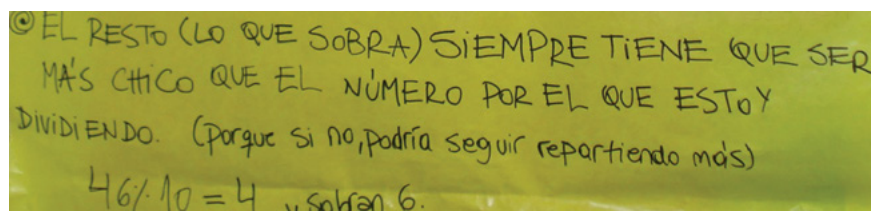 © EL RESTO (LO QUE SOBRA) SIEMPRE TIENE QUE SER
MÁS CHICO QUE EL NÚMERO POR EL QUE ESTOY
DIVIDIENDO. (porque si no, podría seguir repartiendo más)
46 ÷ 10 = 4 y sobran 6.